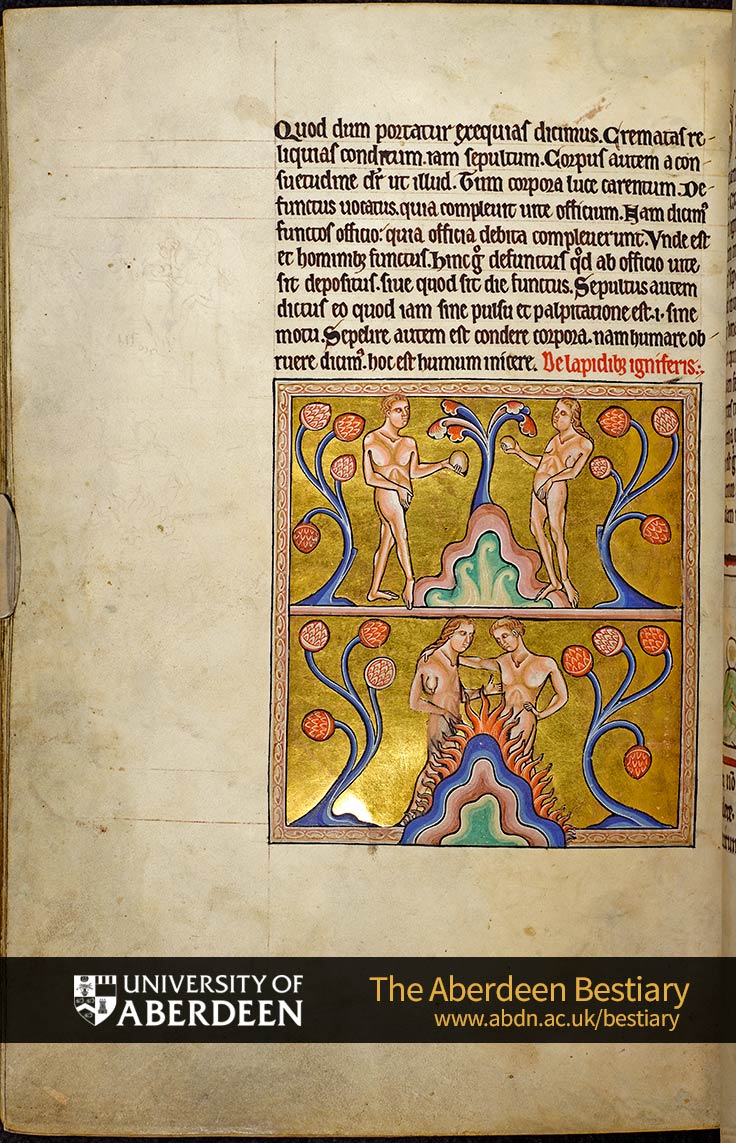 Quod dum portatur exequias dicimus. Crematas re-
liquias conditum. iam sepultum. Corpus autem a con-
suetudine dr̄ ut illud. Tum corpora luce carentum. De-
functus uocatus. quia compleuit uite officium. Nam dicimꝰ
functos officio: quia officia debita compleuerunt. Vnde est
et hominibꝫ functus. Hinc gͦ defunctus qd̓ ab officio uite
sit depositus. siue quod sit die functus. Sepultus autem
dictus eo quod iam sine pulsu et palpitatione est .i. sine
motu. Sepelire autem est condere corpora. nam humare ob-
ruere dicimꝰ. hoc est humum inicere. De lapidibꝫ igniferis.
UNIVERSITY OF
ABERDEEN
The Aberdeen Bestiary
www.abdn.ac.uk/bestiary